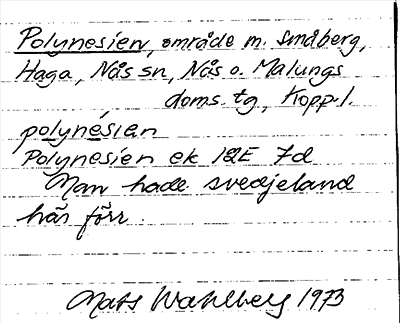 Polynesien, område m. småberg,
Haga, Nås sn, Nås o. Malungs
doms. tg, Kopp. l.
polynésien
Polynesien ek 12E 7d
Man hade svedjeland
här förr.
Mats Wahlberg 1973